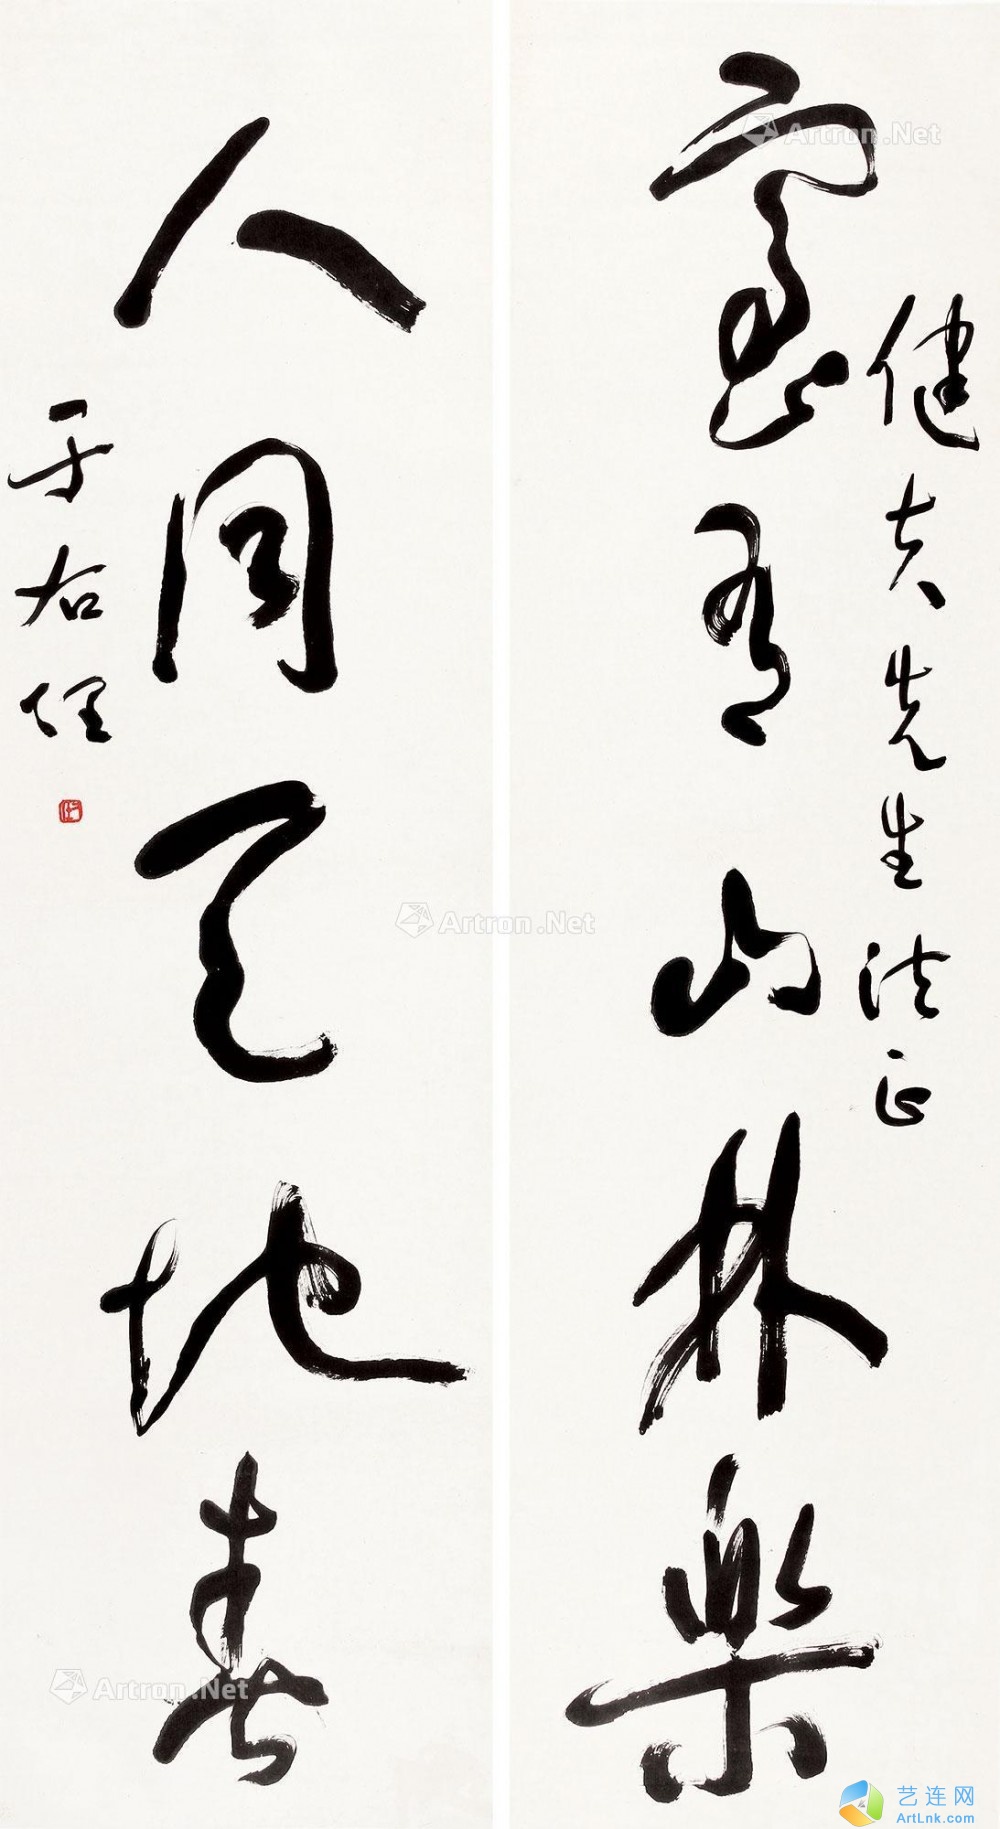 健夫先生法正
室有山林樂
人同天地春
于右任
Artron.Net
Artron.Net
Artron.Net
艺连网
ArtLnk.com